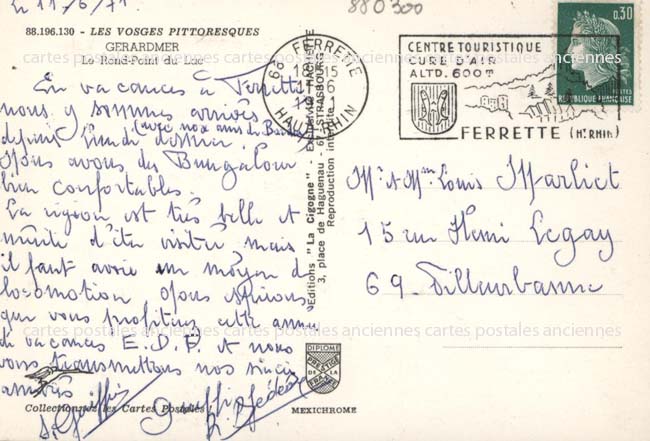 le 11/6/71
880300
88.196.130 - LES VOSGES PITTORESQUES
GERARDMER
Le Rond-Point du Lac
En vacances à Ferrette
nous y sommes arrivés
(avec nos amis de
depuis Lundi dernier.
Nous avons des Bungalow
bien confortables.
La région est très belle et
mérite d'être visitée mais
il faut avoir un moyen de
locomotion Nous espérons
que vous profitiez cette année
de vacances E.D.F. et nous
vous transmettons nos sincères
amitiés
Collectionnez les Cartes Postales
Editions "La Cigogne" -
3, place de Haguenau - 67 STRASBOURG
Reproduction interdite
DIPLOME
PRESTIGE
DE LA
FRANCE
MEXICHROME
68 FERRETTE
18H15
11-6
1971
HAUT-RHIN
CENTRE TOURISTIQUE
CURE D'AIR
ALTD. 600M
FERRETTE (Ht RHIN)
0,30
POSTES
REPUBLIQUE FRANÇAISE
Mr et Mme Louis Marliet
15 rue Henri Legay
69. Villeurbanne
cartes postales anciennes cartes postales anciennes cartes postales anciennes